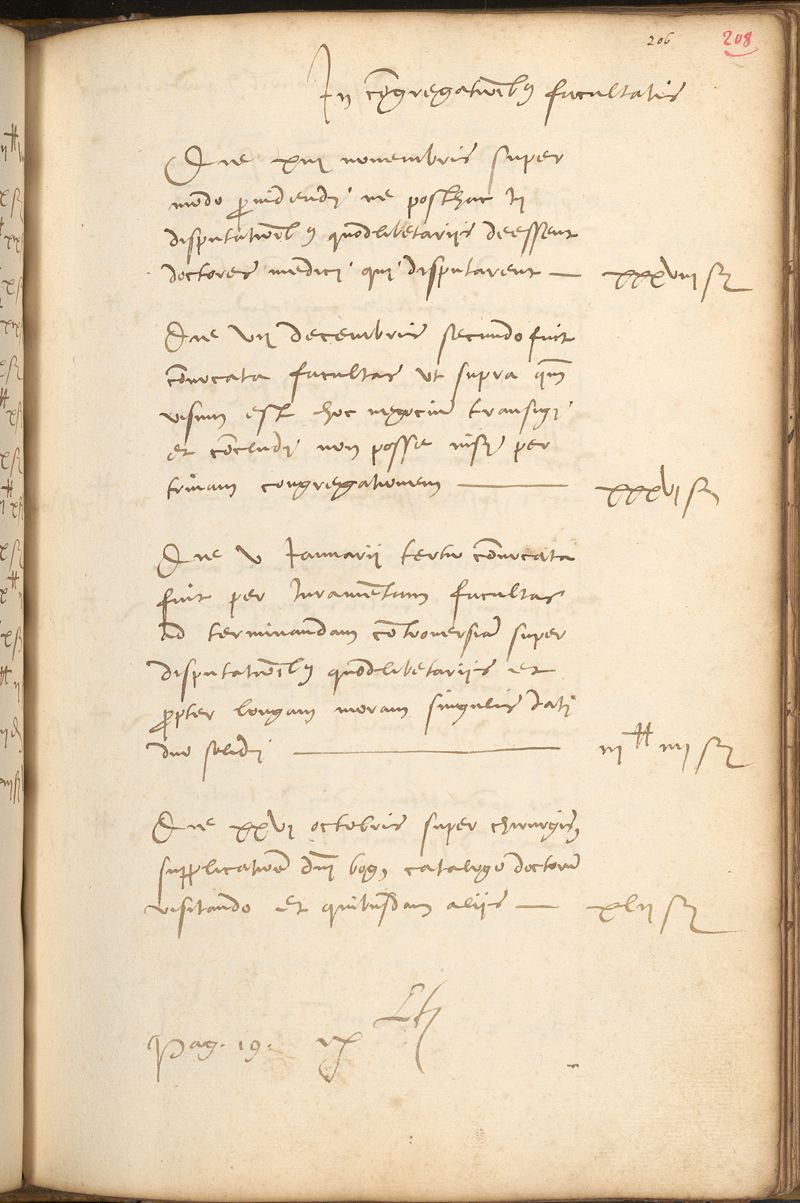 206 208
In co͞gregatio͞ibꝰ facultatis
Die xiii novembris super
modo ꝓvidendi ne posthac ii
disputatio͞ibꝰ quodlibetariis deessent
doctores medici qui disputarent — xxxviii ſ
Die vii decembris secundo fuit
co͞vocata facultas ut supra qm͞
visum est hoc negociu͞ transigi
et co͞cludi non posse nisi per
trinam congregationem — xxxvi ſ
Die v Ianuarii tertio co͞vocata
fuit per Iurame͞tum facultas
ad terminandam co͞troversia͞ super
disputatio͞ibꝰ quodlibetariis et
ꝓpter longam moram singulis dati
duo solidi — iii ₶ iiii ſ
Die xxvi octobris super
supplicatio͞e catalogo doctoru͞
visitando et quibusdam aliis — xlii ſ
Pag. 19.